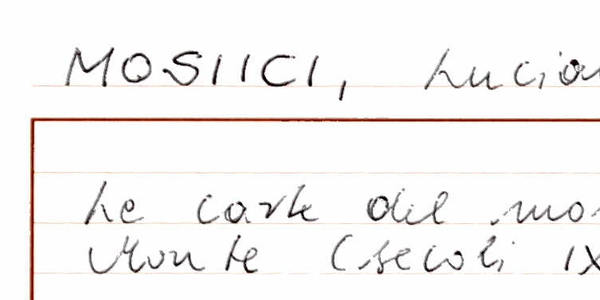 MOSIICI, Lucian
Le carte del mon
Monte (secoli IX